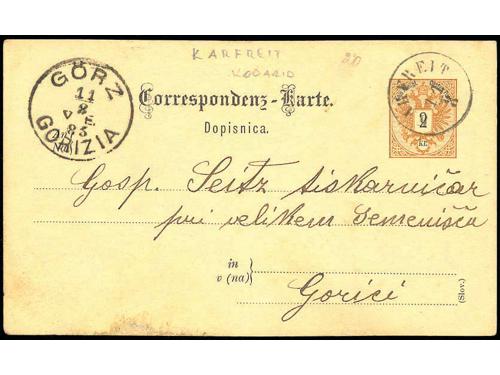 KARFREIT
KOBARID
20
GÖRZ
11
8
85
GORIZIA
KARFREIT
2
KR.
Correspondenz-Karte.
Dopisnica.
Gosp. Seitz tiskarničar
pri velikem Semenišču
in
v (na)
Gorici
(Slov.)